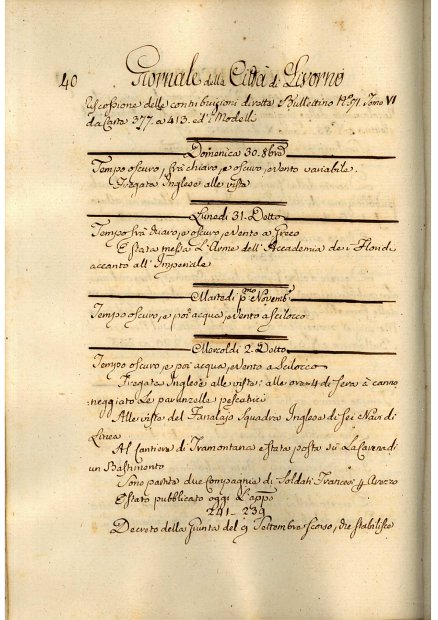 40 Giornale della Città di Livorno
Riscossione delle contribuzioni dirette Bullettino N.° 71 Tomo VI
da Carta 377. a 413. ed i Modelli
Domenica 30. 8bre
Tempo oscuro, frà chiaro, e oscuro, e vento variabile.
Fregata Inglese alle viste
Lunedì 31. Detto
Tempo frà chiaro, e oscuro, e vento a Greco
È stata messa L'Arme dell'Accademia de i Floridi
accanto all'Imperiale
Martedì p.mo Novemb.
Tempo oscuro, e poi acqua, e vento a Scilocco
Mercoldì 2. Detto
Tempo oscuro, e poi acqua, e vento a Scilocco
Fregata Inglese alle viste: alle ore 4 di sera à canno
neggiato Le paranzelle pescatrici
Alle viste del Fanalajo Squadra Inglese di Sei Navi di
Linea
Al Cantiere di Tramontana è stata posta sù La Carena di
un Bastimento
Sono partite due Compagnie di Soldati Francesi p Arezzo
È stato pubblicato oggi L'app.o
241 - 239
Decreto della Giunta del 9 Settembre scorso, che stabilisce